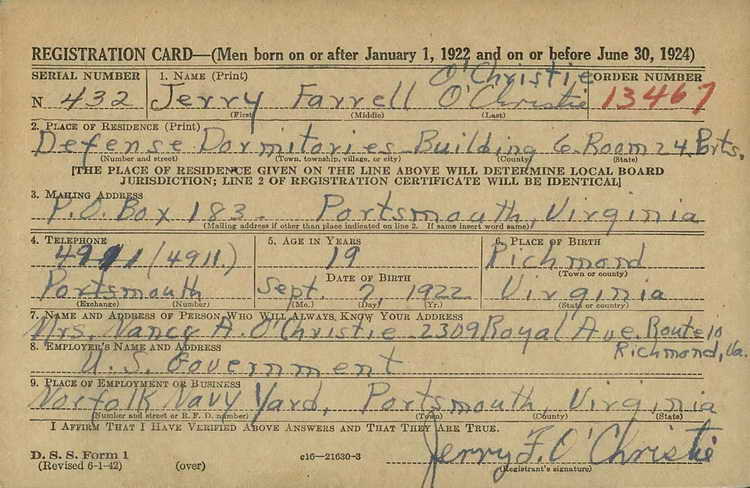 REGISTRATION CARD—(Men born on or after January 1, 1922 and on or before June 30, 1924)
SERIAL NUMBER 1. NAME (Print) O'Christie ORDER NUMBER
N 432 Jerry Farrell O'Christie 13467
(First) (Middle) (Last)
2. PLACE OF RESIDENCE (Print)
Defense Dormitories Building 6 Room 24 Ports.
(Number and street) (Town, township, village, or city) (County) (State)
[THE PLACE OF RESIDENCE GIVEN ON THE LINE ABOVE WILL DETERMINE LOCAL BOARD
JURISDICTION; LINE 2 OF REGISTRATION CERTIFICATE WILL BE IDENTICAL]
3. MAILING ADDRESS
P.O. Box 183 Portsmouth, Virginia
(Mailing address if other than place indicated on line 2. If same insert word same)
4. TELEPHONE 5. AGE IN YEARS 6. PLACE OF BIRTH
4911 (4911.) 19 Richmond
DATE OF BIRTH (Town or county)
Portsmouth Sept. 2, 1922 Virginia
(Exchange) (Number) (Mo.) (Day) (Yr.) (State or country)
7. NAME AND ADDRESS OF PERSON WHO WILL ALWAYS KNOW YOUR ADDRESS
Mrs. Nancy A. O'Christie 2309 Royal Ave. Route 10
Richmond, Va.
8. EMPLOYER'S NAME AND ADDRESS
U.S. Government
9. PLACE OF EMPLOYMENT OR BUSINESS
Norfolk Navy Yard, Portsmouth, Virginia
(Number and street or R. F. D. number) (Town) (County) (State)
I AFFIRM THAT I HAVE VERIFIED ABOVE ANSWERS AND THAT THEY ARE TRUE.
Jerry F. O'Christie
D. S. S. Form 1
(Revised 6-1-42) (over) c16—21630-3 (Registrant's signature)